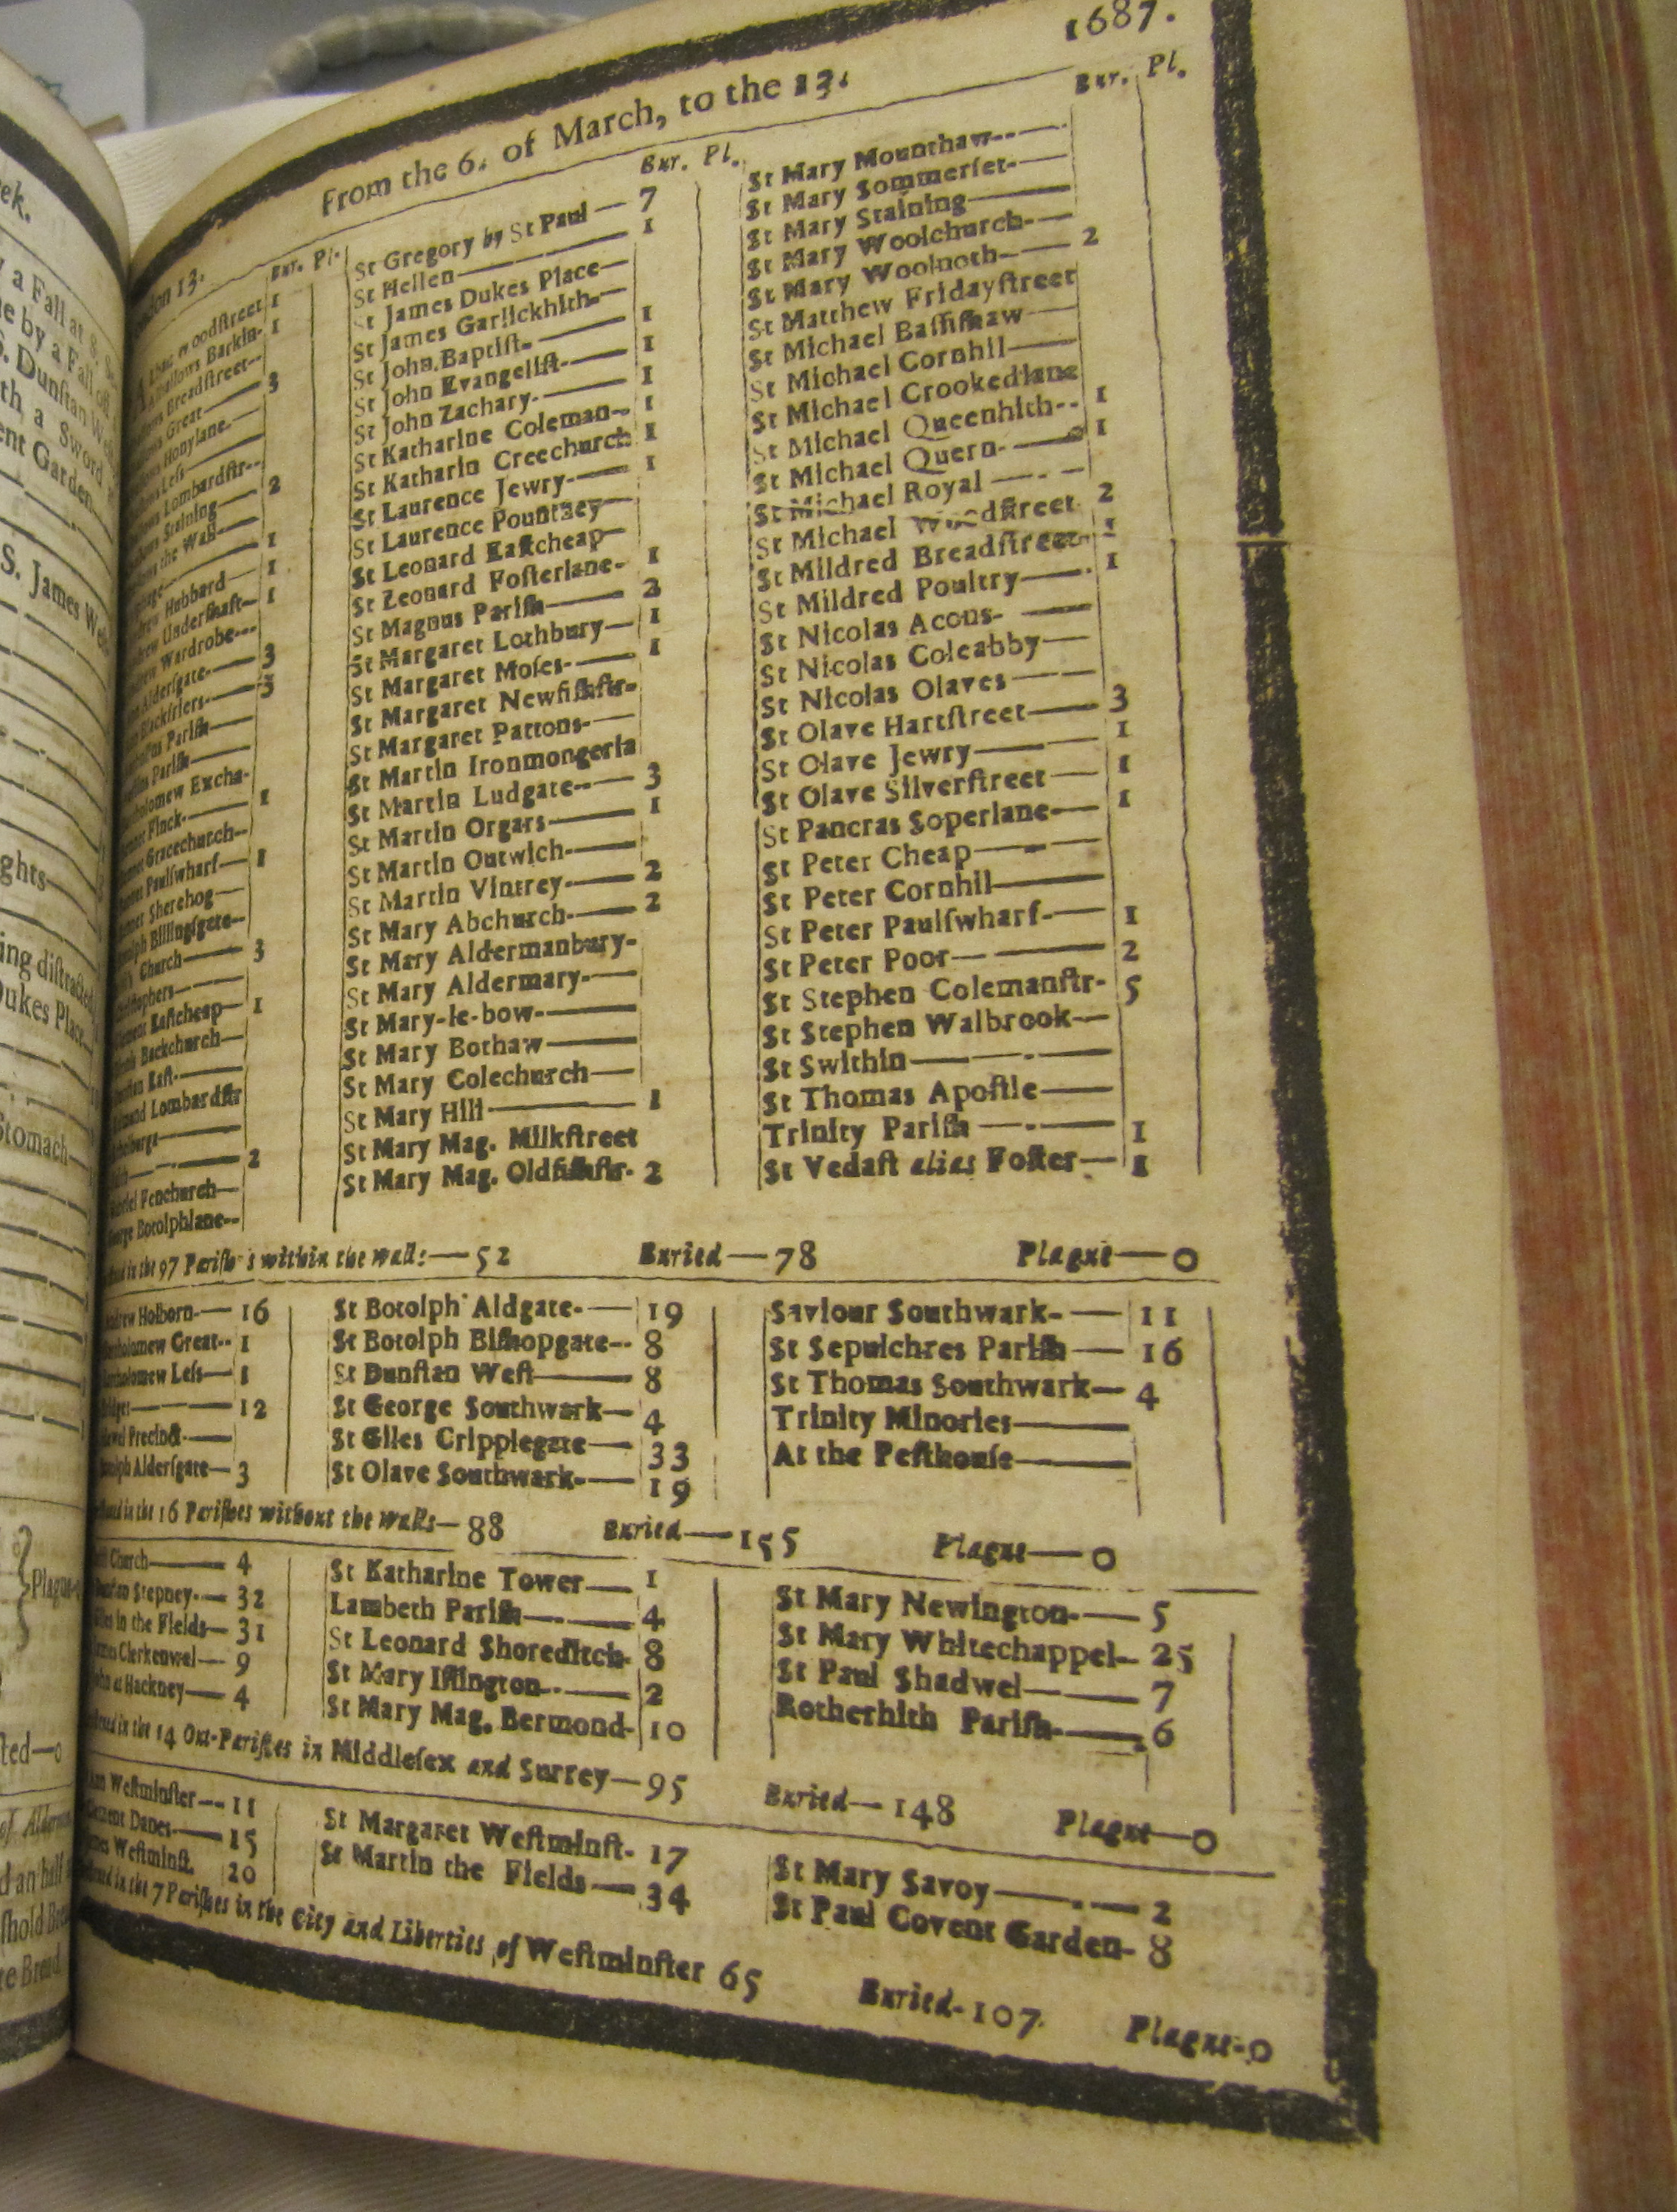 1687.
From the 6. of March, to the 13.
Bur. Pl.
Bur. Pl.
Bur. Pl.
13.
Woodſtreet 1
Barkin- 1
Breadſtreet--
Great— 3
Honylane—
Leſs—
Lombardſtr--
Staining— 2
the Wall—
1
Hubbard— 1
Underſhaft— 1
Wardrobe---
Alderſgate— 3
Blackfriers— 3
Pariſh—
Pariſh—
Excha-
Finck— 1
Gracechurch—
Paulſwharf— 1
Sherehog—
Billingſgate—
Church— 3
Eaſtcheap— 1
Backchurch—
Eaſt—
Lombardſtr
2
Fenchurch—
Botolphlane--
St Gregory by St Paul — 7
St Hellen— 1
St James Dukes Place—
St James Garlickhith-—
St John Baptiſt-— 1
St John Evangeliſt-— 1
St John Zachary-— 1
St Katharine Coleman-- 1
St Katharin Creechurch 1
St Laurence Jewry-— 1
St Laurence Pountney—
St Leonard Eaſtcheap—
St Leonard Foſterlane- 1
St Magnus Pariſh— 2
St Margaret Lothbury— 1
St Margaret Moſes-— 1
St Margaret Newfiſhſtr-
St Margaret Pattons-—
St Martin Ironmongerla
St Martin Ludgate--— 3
St Martin Orgars— 1
St Martin Outwich-—
St Martin Vintrey-— 2
St Mary Abchurch-— 2
St Mary Aldermanbury-
St Mary Aldermary-—
St Mary-le-bow-—
St Mary Bothaw—
St Mary Colechurch—
St Mary Hill— 1
St Mary Mag. Milkſtreet
St Mary Mag. Oldfiſhſtr- 2
St Mary Mounthaw--—
St Mary Sommerſet-—
St Mary Staining—
St Mary Woolchurch-—
St Mary Woolnoth-— 2
St Matthew Fridayſtreet
St Michael Baſſiſhaw—
St Michael Cornhil—
St Michael Crookedlane
St Michael Queenhith-- 1
St Michael Quern-— 1
St Michael Royal—
St Michael Woodſtreet 2
St Mildred Breadſtreet- 1
St Mildred Poultry— 1
St Nicolas Acons-—
St Nicolas Coleabby—
St Nicolas Olaves—
St Olave Hartſtreet— 3
St Olave Jewry— 1
St Olave Silverſtreet— 1
St Pancras Soperlane— 1
St Peter Cheap—
St Peter Cornhil—
St Peter Paulſwharf-— 1
St Peter Poor— 2
St Stephen Colemanſtr- 5
St Stephen Walbrook—
St Swithin—
St Thomas Apoſtle—
Trinity Pariſh— 1
St Vedaſt alias Foſter— 1
in the 97 Pariſhes within the walls— 52 Buried— 78 Plague— 0
Holborn-— 16
Great-- 1
Leſs— 1
12
Precinct-—
Alderſgate— 3
St Botolph Aldgate-— 19
St Botolph Biſhopgate-- 8
St Dunſtan Weſt— 8
St George Southwark— 4
St Giles Cripplegate— 33
St Olave Southwark-— 19
Saviour Southwark-— 11
St Sepulchres Pariſh— 16
St Thomas Southwark— 4
Trinity Minories—
At the Peſthouſe—
in the 16 Pariſhes without the walls— 88 Buried— 155 Plague— 0
Church— 4
Stepney-— 32
in the Fields— 31
Clerkenwel— 9
at Hackney— 4
St Katharine Tower— 1
Lambeth Pariſh-— 4
St Leonard Shoreditch- 8
St Mary Iſlington-— 2
St Mary Mag. Bermond- 10
St Mary Newington-— 5
St Mary Whitechappel-- 25
St Paul Shadwel— 7
Rotherhith Pariſh-— 6
in the 14 Out-Pariſhes in Middleſex and Surrey— 95 Buried— 148 Plague— 0
Weſtminſter-- 11
Danes-— 15
Weſtminſt. 20
St Margaret Weſtminſt- 17
St Martin the Fields— 34
St Mary Savoy— 2
St Paul Covent Garden- 8
in the 7 Pariſhes in the City and Liberties of Weſtminſter 65 Buried- 107 Plague- 0